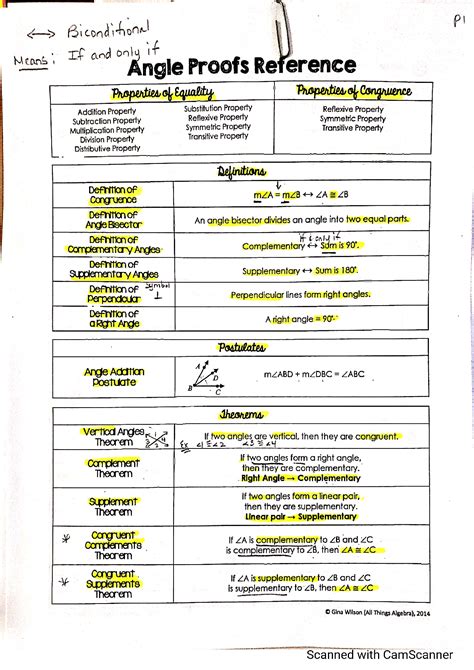 P1
<-> Biconditional
Means: If and only if
Angle Proofs Reference
Properties of Equality
Properties of Congruence
Addition Property
Subtraction Property
Multiplication Property
Division Property
Distributive Property
Substitution Property
Reflexive Property
Symmetric Property
Transitive Property
Reflexive Property
Symmetric Property
Transitive Property
Definitions
Definition of
Congruence
m∠A = m∠B ↔ ∠A ≅ ∠B
Definition of
Angle Bisector
An angle bisector divides an angle into two equal parts.
Definition of
Complementary Angles
if & only if
Complementary ↔ Sum is 90°.
Definition of
Supplementary Angles
Supplementary ↔ Sum is 180°.
Definition of
Perpendicular
symbol
⊥
Perpendicular lines form right angles.
Definition of
a Right Angle
A right angle = 90°
Postulates
Angle Addition
Postulate
A
D
B
C
m∠ABD + m∠DBC = ∠ABC
Theorems
Vertical Angles
Theorem
1
3 4
2
Ex ∠1 ≅ ∠2 ∠3 ≅ ∠4
If two angles are vertical, then they are congruent.
Complement
Theorem
If two angles form a right angle,
then they are complementary.
Right Angle → Complementary
Supplement
Theorem
If two angles form a linear pair,
then they are supplementary.
Linear pair → Supplementary
Congruent
Complements
Theorem
If ∠A is complementary to ∠B and ∠C
is complementary to ∠B, then ∠A ≅ ∠C
Congruent
Supplements
Theorem
If ∠A is supplementary to ∠B and ∠C
is supplementary to ∠B, then ∠A ≅ ∠C
© Gina Wilson (All Things Algebra), 2014
Scanned with CamScanner